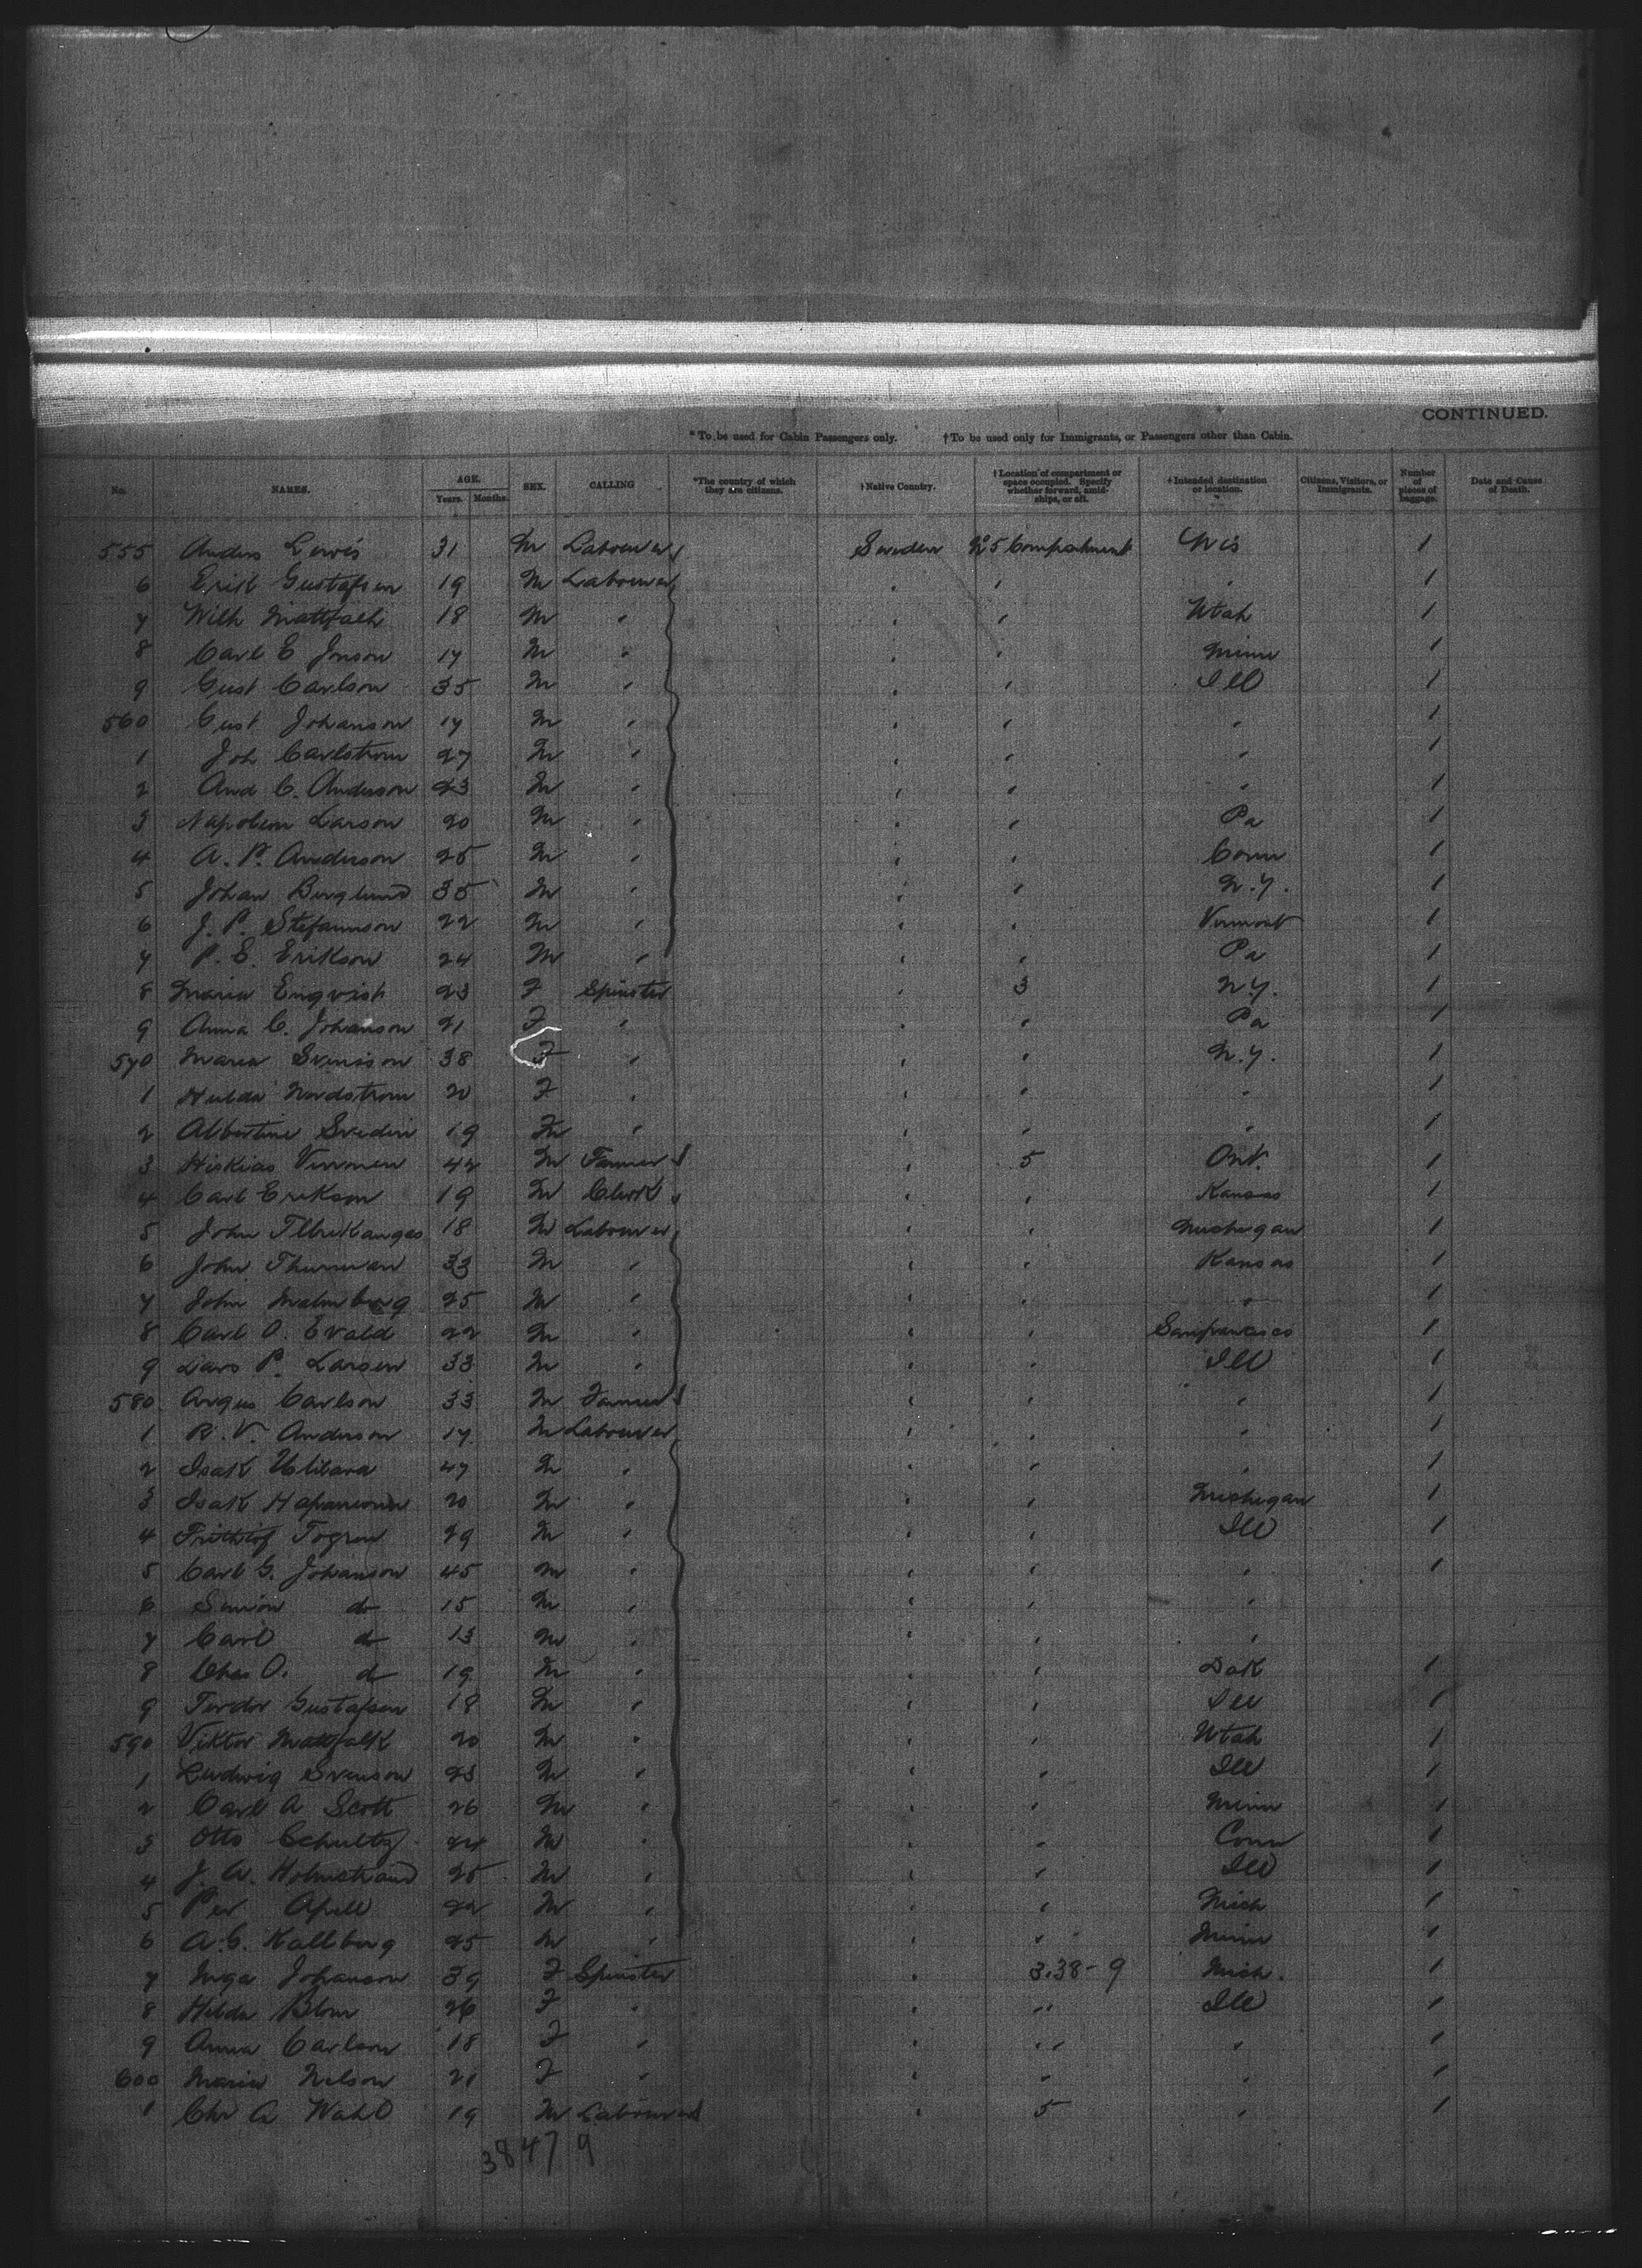 CONTINUED.
*To be used for Cabin Passengers only. †To be used only for Immigrants, or Passengers other than Cabin.
No. NAMES. AGE. Years. Months. SEX. CALLING *The country of which they are citizens. †Native Country. †Location of compartment or space occupied. Specify whether forward, amidships, or aft. †Intended destination or location. Citizens, Visitors, or Immigrants. Number of pieces of baggage. Date and Cause of Death.
555 Anders Lewis 31 M Labourer Sweden No 5 Compartment Wis 1
6 Erik Gustafson 19 M Labourer " " " 1
7 Wilh 18 M " " " Utah 1
8 Carl E Jonson 17 M " " " Minn 1
9 Gust Carlson 35 M " " " Ill 1
560 Gust Johanson 17 M " " " " 1
1 Joh Carlstrom 27 M " " " " 1
2 And C. Anderson 23 M " " " " 1
3 Napoleon Larson 20 M " " " Pa 1
4 A. P. Anderson 25 M " " " Conn 1
5 Johan Berglund 35 M " " " N.Y. 1
6 J. P. Stefannson 22 M " " " Vermont 1
7 P. E. Erikson 24 M " " " Pa 1
8 Maria Enqvist 23 F Spinster " 3 N.Y. 1
9 Anna C. Johanson 21 F " " " Pa 1
570 Maria Svenson 38 F " " " N.Y. 1
1 Hulda Nordstrom 20 F " " " " 1
2 Albertine Svedin 19 " " " " 1
3 Hiskias 42 M Farmer " 5 Ont. 1
4 Carl Erikson 19 M Clerk " " Kansas 1
5 John 18 M Labourer " " Michigan 1
6 John Thurman 33 M " " " Kansas 1
7 John Malmberg 25 M " " " " 1
8 Carl O. Evald 22 M " " " Sanfrancisco 1
9 Lars P. Larsen 33 M " " " Ill 1
580 Argus Carlson 33 M Farmer " " " 1
1 R. V. Anderson 17 M Labourer " " " 1
2 Isak 47 M " " " " 1
3 Isak 20 M " " " Michigan 1
4 Frithiof 29 M " " " Ill 1
5 Carl G. Johanson 45 M " " " " 1
6 Simon do 15 M " " " "
7 Carl do 13 M " " " "
8 Chas O. do 19 M " " " Dak 1
9 Gustafson 18 M " " " Ill 1
590 Viktor 20 M " " " Utah 1
1 Ludwig Svenson 23 M " " " Ill 1
2 Carl A Scott 26 M " " " Minn 1
3 Otto Schultz 24 M " " " Conn 1
4 J. A. Holmstrand 25 M " " " Ill 1
5 Per Apell 22 M " " " Mich 1
6 A. G. Kallberg 25 M " " " Minn 1
7 Inga Johanson 39 F Spinster " 3.38-9 Mich. 1
8 Hilda Blom 26 F " " " Ill 1
9 Anna Carlson 18 F " " " " 1
600 Maria Nelson 21 F " " " " 1
1 Chr A Wahl 19 M Labourer " 5 " 1
38 47 9